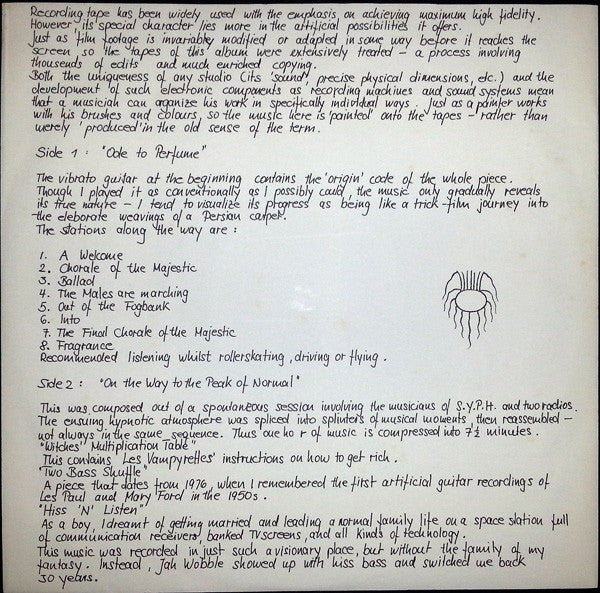 Recording tape has been widely used with the emphasis on achieving maximum high fidelity.
However its special character lies more in the artificial possibilities it offers.
Just as film footage is invariably modified or adapted in some way before it reaches the
screen, so the tapes of this album were extensively treated – a process involving
thousands of edits and much enriched copying.
Both the uniqueness of any studio (its 'sound', precise physical dimensions, etc.) and the
development of such electronic components as recording machines and sound systems mean
that a musician can organize his work in specifically individual ways. Just as a painter works
with his brushes and colours, so the music here is 'painted' onto the tapes – rather than
merely 'produced' in the old sense of the term.
Side 1 : "Ode to Perfume"
The vibrato guitar at the beginning contains the 'origin' code of the whole piece.
Though I played it as conventionally as I possibly could, the music only gradually reveals
its true nature – I tend to visualize its progress as being like a trick-film journey into
the eleborate weavings of a Persian carpet.
The stations along the way are :
1. A Welcome
2. Chorale of the Majestic
3. Ballad
4. The Males are marching
5. Out of the Fogbank
6. Into
7. The Final Chorale of the Majestic
8. Fragrance
Recommended listening whilst rollerskating, driving or flying.
Side 2 : "On the Way to the Peak of Normal"
This was composed out of a spontaneous session involving the musicians of S.Y.P.H. and two radios.
The ensuing hypnotic atmosphere was spliced into splinters of musical moments, then reassembled –
not always in the same sequence. Thus one ho r of music is compressed into 7½ minutes.
"Witches' Multiplication Table"
This contains 'Les Vampyrettes' instructions on how to get rich.
"Two Bass Shuffle"
A piece that dates from 1976, when I remembered the first artificial guitar recordings of
Les Paul and Mary Ford in the 1950s.
"Hiss 'N' Listen"
As a boy, I dreamt of getting married and leading a normal family life on a space station full
of communication receivers, banked TV screens, and all kinds of technology.
This music was recorded in just such a visionary place, but without the family of my
fantasy. Instead, Jah Wobble showed up with hiss bass and switched me back
30 years.